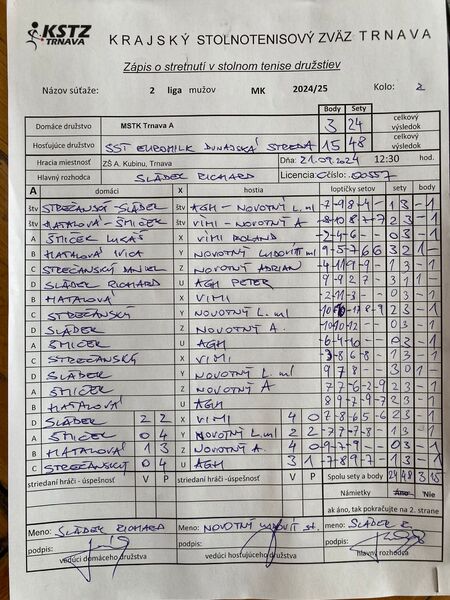 KSTZ
TRNAVA
KRAJSKÝ STOLNOTENISOVÝ ZVÄZ TRNAVA
Zápis o stretnutí v stolnom tenise družstiev
Názov súťaže: 2 liga mužov MK 2024/25 Kolo: 2
Body Sety
Domáce družstvo MSTK Trnava A 3 24 celkový výsledok
Hosťujúce družstvo SST EUROMILK DUNAJSKÁ STREDA 15 48 celkový výsledok
Hracia miestnosť ZŠ A. Kubinu, Trnava Dňa: 21.09.2024 12:30 hod.
Hlavný rozhodca SLÁDEK RICHARD Licencia číslo: 00557
A domáci X hostia loptičky setov sety body
štv STREČANSKÝ - SLÁDEK štv AGH - NOVOTNÝ L. ml 13 - 1
štv MATALOVÁ - ŠMIČEK štv VIMI - NOVOTNÝ A 23 - 1
A ŠMIČEK LUKÁŠ X VIMI ROLAND 03 - 1
B MATALOVÁ IVICA Y NOVOTNÝ ĽUDOVÍT ml 9 -5 -7 6 6 32 1 -
C STREČANSKÝ DANIEL Z NOVOTNÝ ADRIAN 13 - 1
D SLÁDEK RICHARD U AGH PETER 9 -9 2 7 31 1 -
B MATALOVÁ X VIMI -2 -11 -3 - - 03 - 1
C STREČANSKÝ Y NOVOTNÝ L. ml 23 - 1
D SLÁDEK Z NOVOTNÝ A. -10 -10 -12 03 - 1
A ŠMIČEK U AGH -6 -4 -10 03 - 1
C STREČANSKÝ X VIMI 13 - 1
D SLÁDEK Y NOVOTNÝ L. ml 9 7 8 - - 30 1 -
A ŠMIČEK Z NOVOTNÝ A 23 - 1
B MATALOVÁ U AGH 23 - 1
D SLÁDEK 2 2 X VIMI 4 0 23 - 1
A ŠMIČEK 0 4 Y NOVOTNÝ L. ml 2 2 13 - 1
B MATALOVÁ 1 3 Z NOVOTNÝ A. 4 0 03 - 1
C STREČANSKÝ 0 4 U AGH 3 1 13 - 1
striedaní hráči - úspešnosť V P striedaní hráči - úspešnosť V P Spolu sety a body 24 48 3 15
Námietky Áno Nie
ak áno, tak pokračujte na 2. strane
Meno: SLÁDEK RICHARD Meno: NOVOTNÝ ĽUDOVÍT st. Meno: SLÁDEK R.
podpis: podpis: podpis:
vedúci domáceho družstva vedúci hosťujúceho družstva hlavný rozhodca